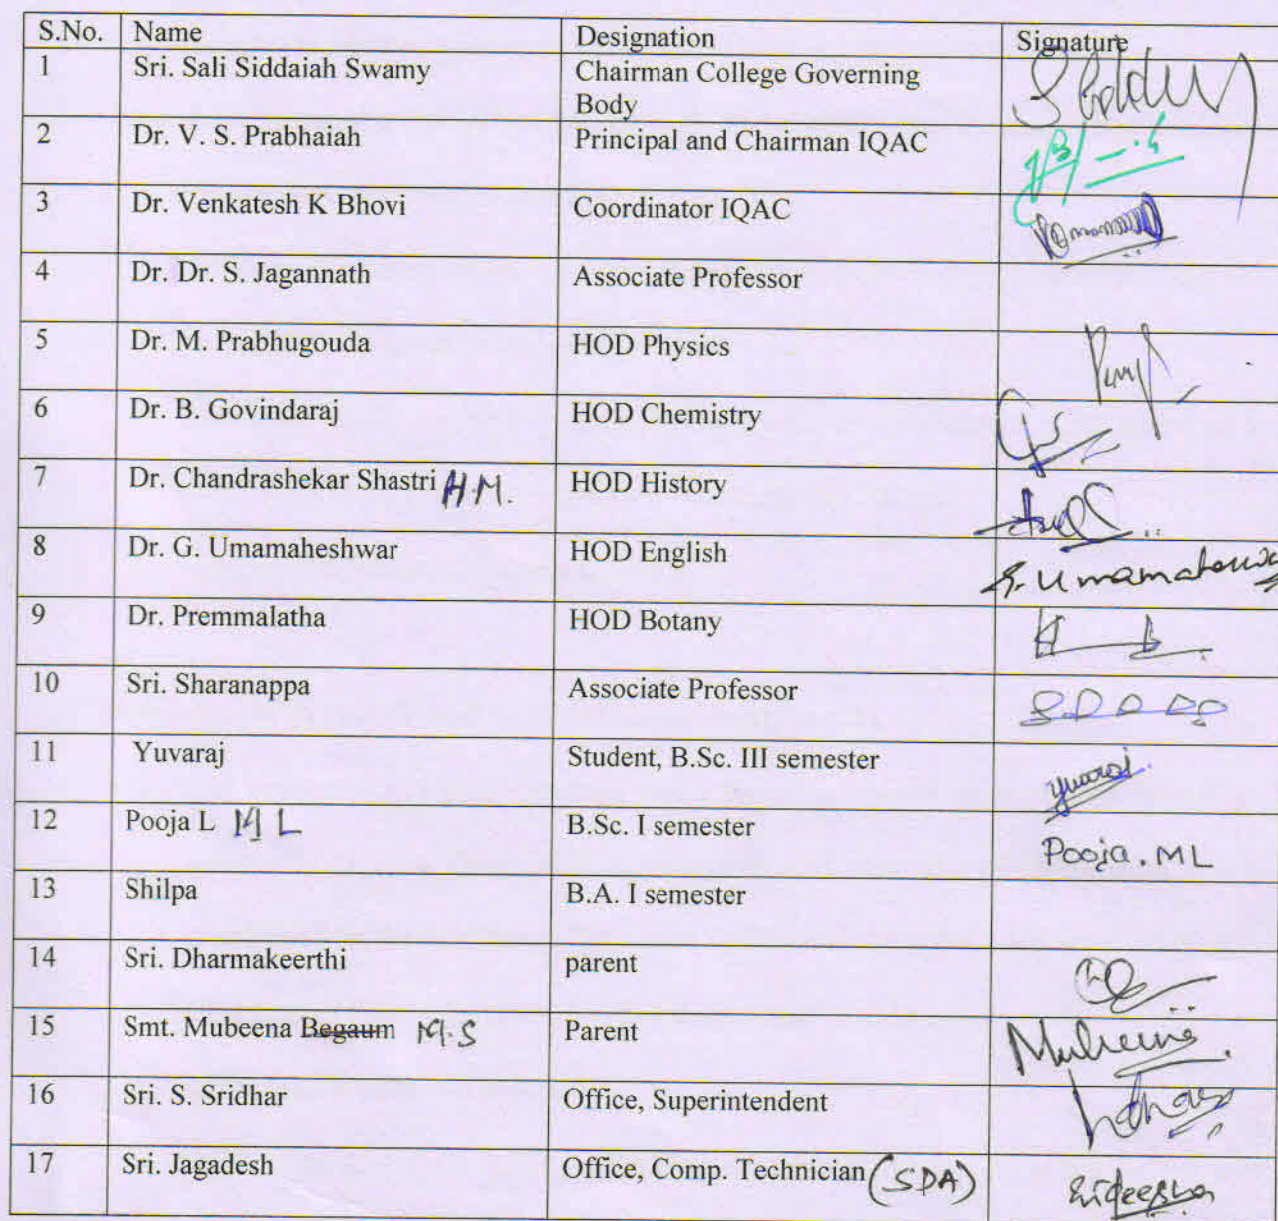 S.No. Name Designation Signature
1 Sri. Sali Siddaiah Swamy Chairman College Governing
Body
2 Dr. V. S. Prabhaiah Principal and Chairman IQAC
3 Dr. Venkatesh K Bhovi Coordinator IQAC
4 Dr. Dr. S. Jagannath Associate Professor
5 Dr. M. Prabhugouda HOD Physics
6 Dr. B. Govindaraj HOD Chemistry
7 Dr. Chandrashekar Shastri H.M. HOD History
8 Dr. G. Umamaheshwar HOD English
9 Dr. Premmalatha HOD Botany
10 Sri. Sharanappa Associate Professor
11 Yuvaraj Student, B.Sc. III semester Yuvaraj
12 Pooja L M L B.Sc. I semester Pooja.ML
13 Shilpa B.A. I semester
14 Sri. Dharmakeerthi parent
15 Smt. Mubeena Begaum M.S Parent Mubeena
16 Sri. S. Sridhar Office, Superintendent
17 Sri. Jagadesh Office, Comp. Technician (SDA)